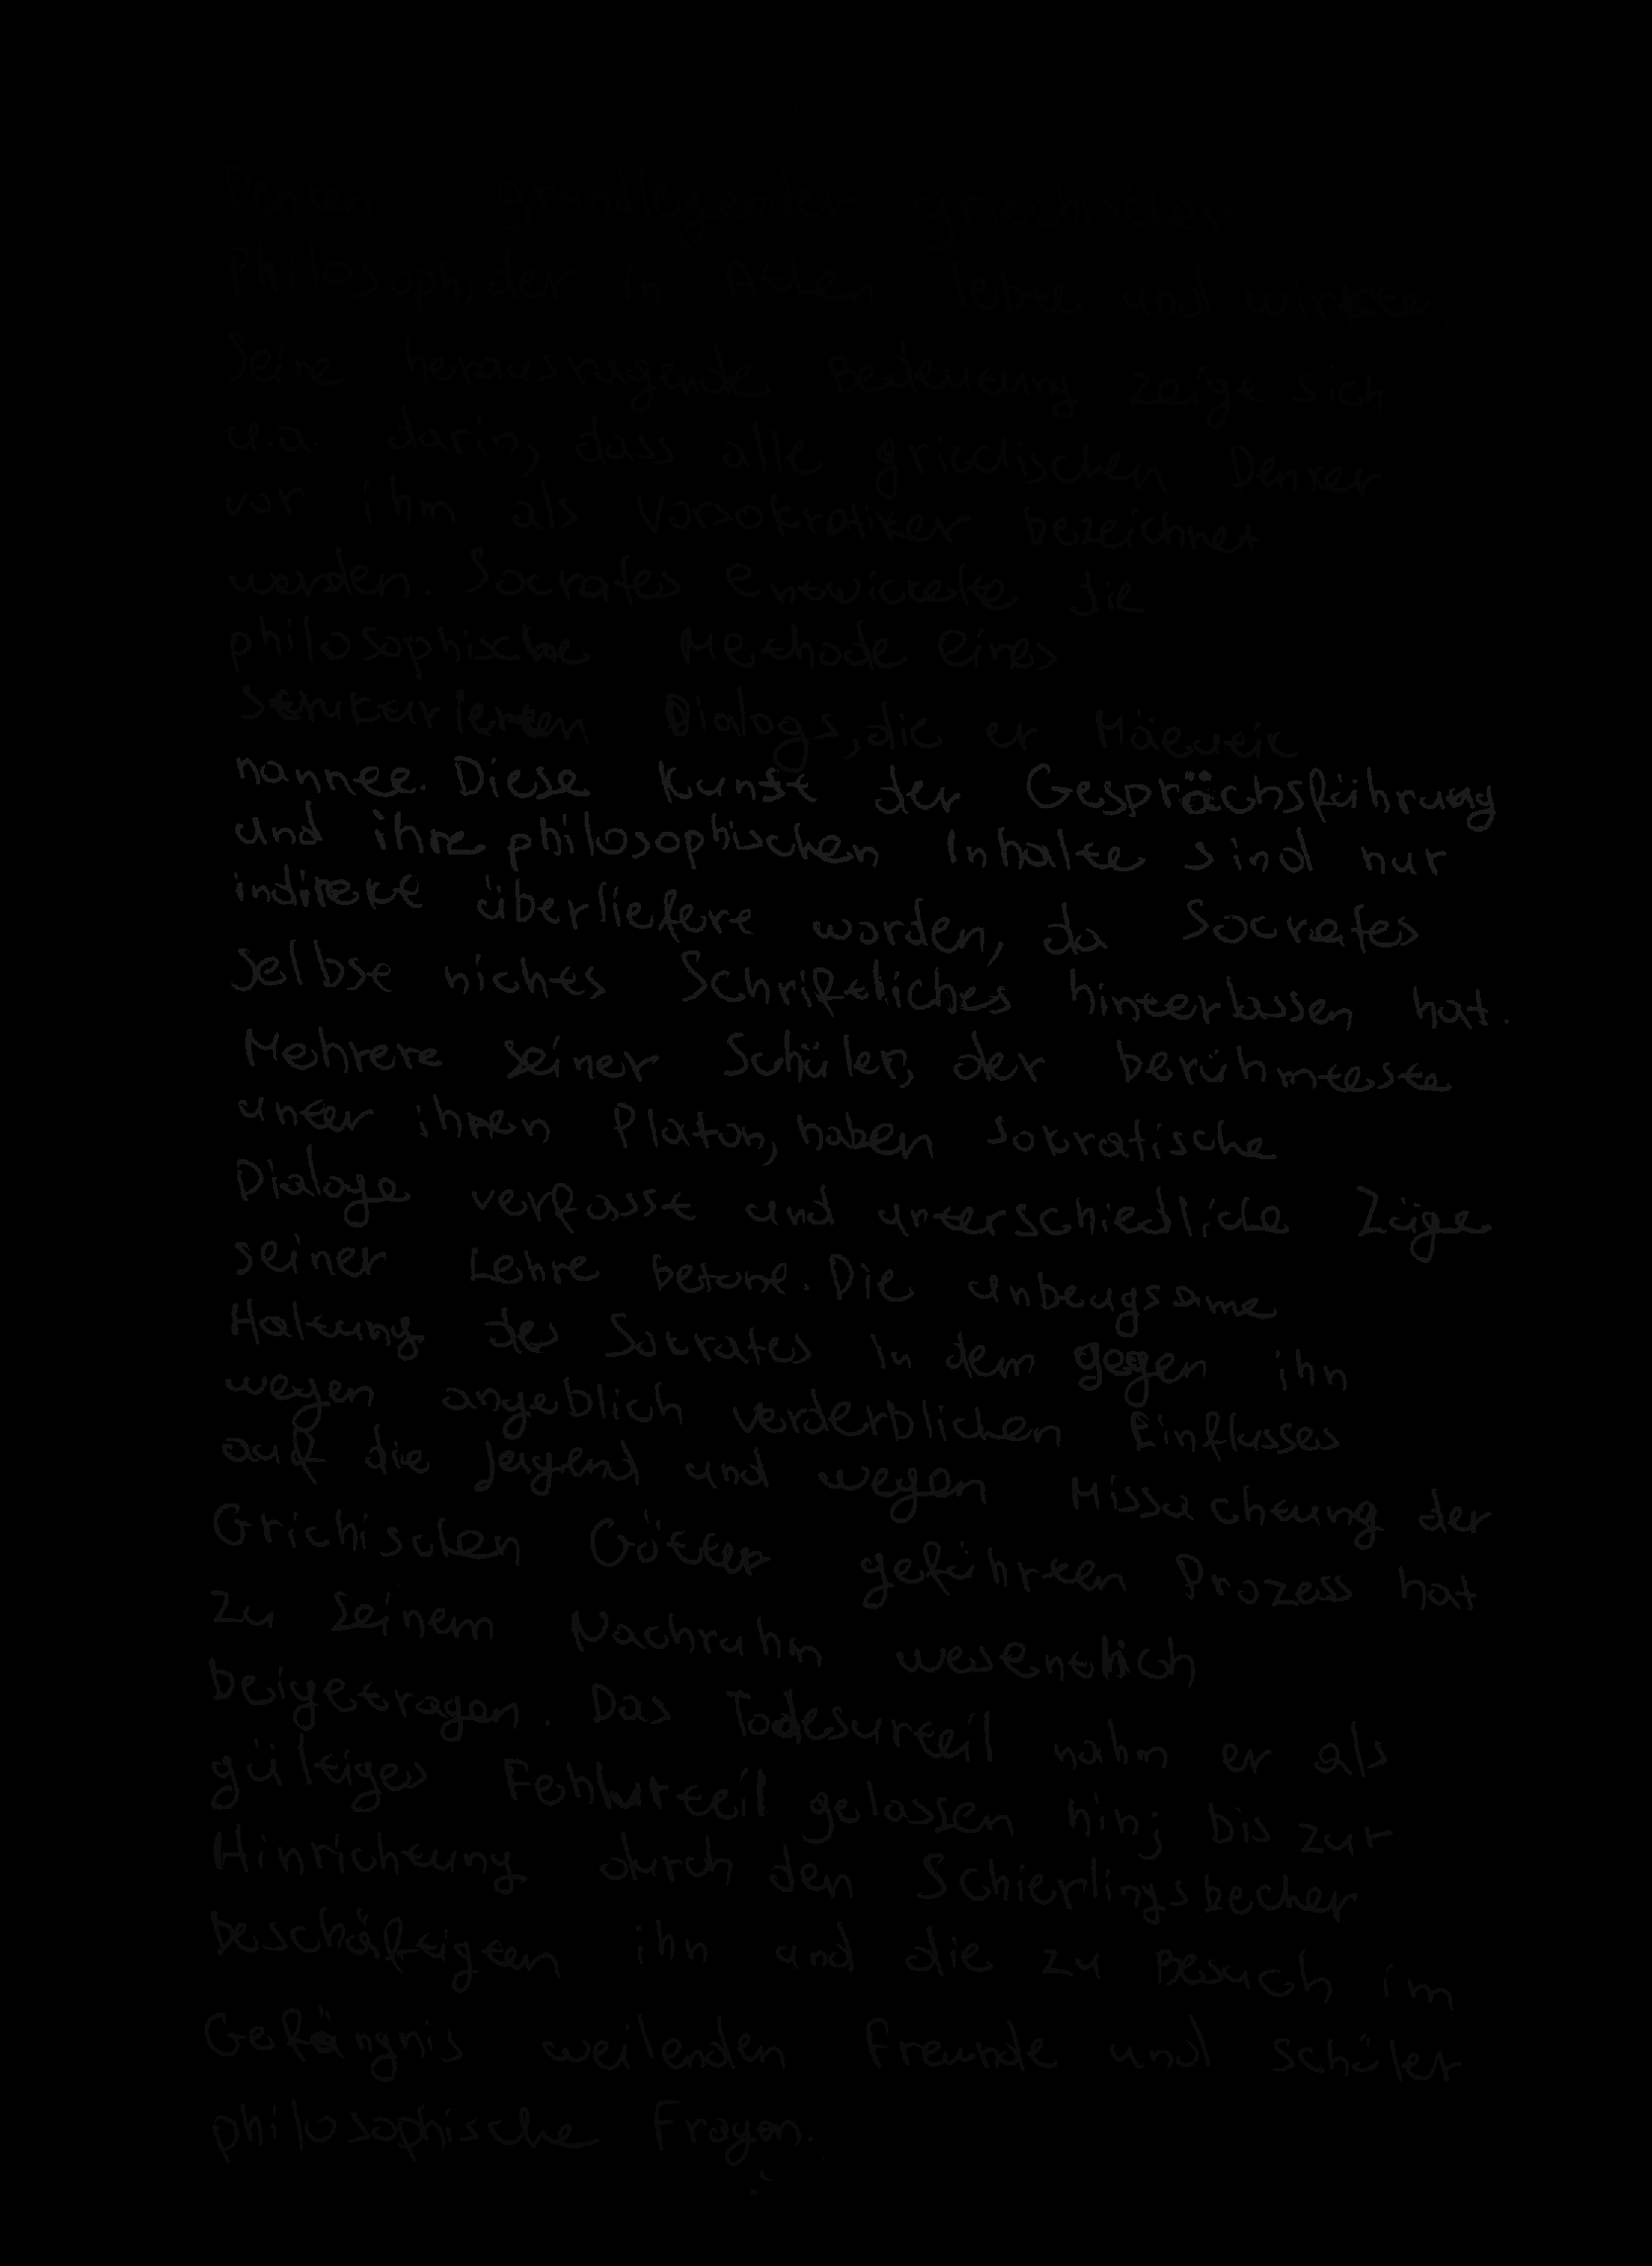 Denken grundlegender griechischer
Philosoph, der in Athen lebte und wirkte.
Seine herausragende Bedeutung zeigt sich
u.a. darin, dass alle griechischen Denker
vor ihm als Vorsokratiker bezeichnet
werden. Socrates entwickelte die
philosophische Methode eines
strukturierten Dialogs, die er Mäeutik
nannte. Diese Kunst der Gesprächsführung
und ihre philosophischen Inhalte sind nur
indirekt überliefert worden, da Socrates
selbst nichts Schriftliches hinterlassen hat.
Mehrere seiner Schüler, der berühmteste
unter ihnen Platon, haben sokratische
Dialoge verfasst und unterschiedliche Züge
seiner Lehre betont. Die unbeugsame
Haltung des Sokrates in dem gegen ihn
wegen angeblich verderblichen Einflusses
auf die Jugend und wegen Missachtung der
Grichischen Götter geführten Prozess hat
zu seinem Nachruhm wesentlich
beigetragen. Das Todesurteil nahm er als
gültiges Fehlurteil gelassen hin; bis zur
Hinrichtung durch den Schierlingsbecher
beschäftigten ihn und die zu Besuch im
Gefängnis weilenden Freunde und Schüler
philosophische Fragen.